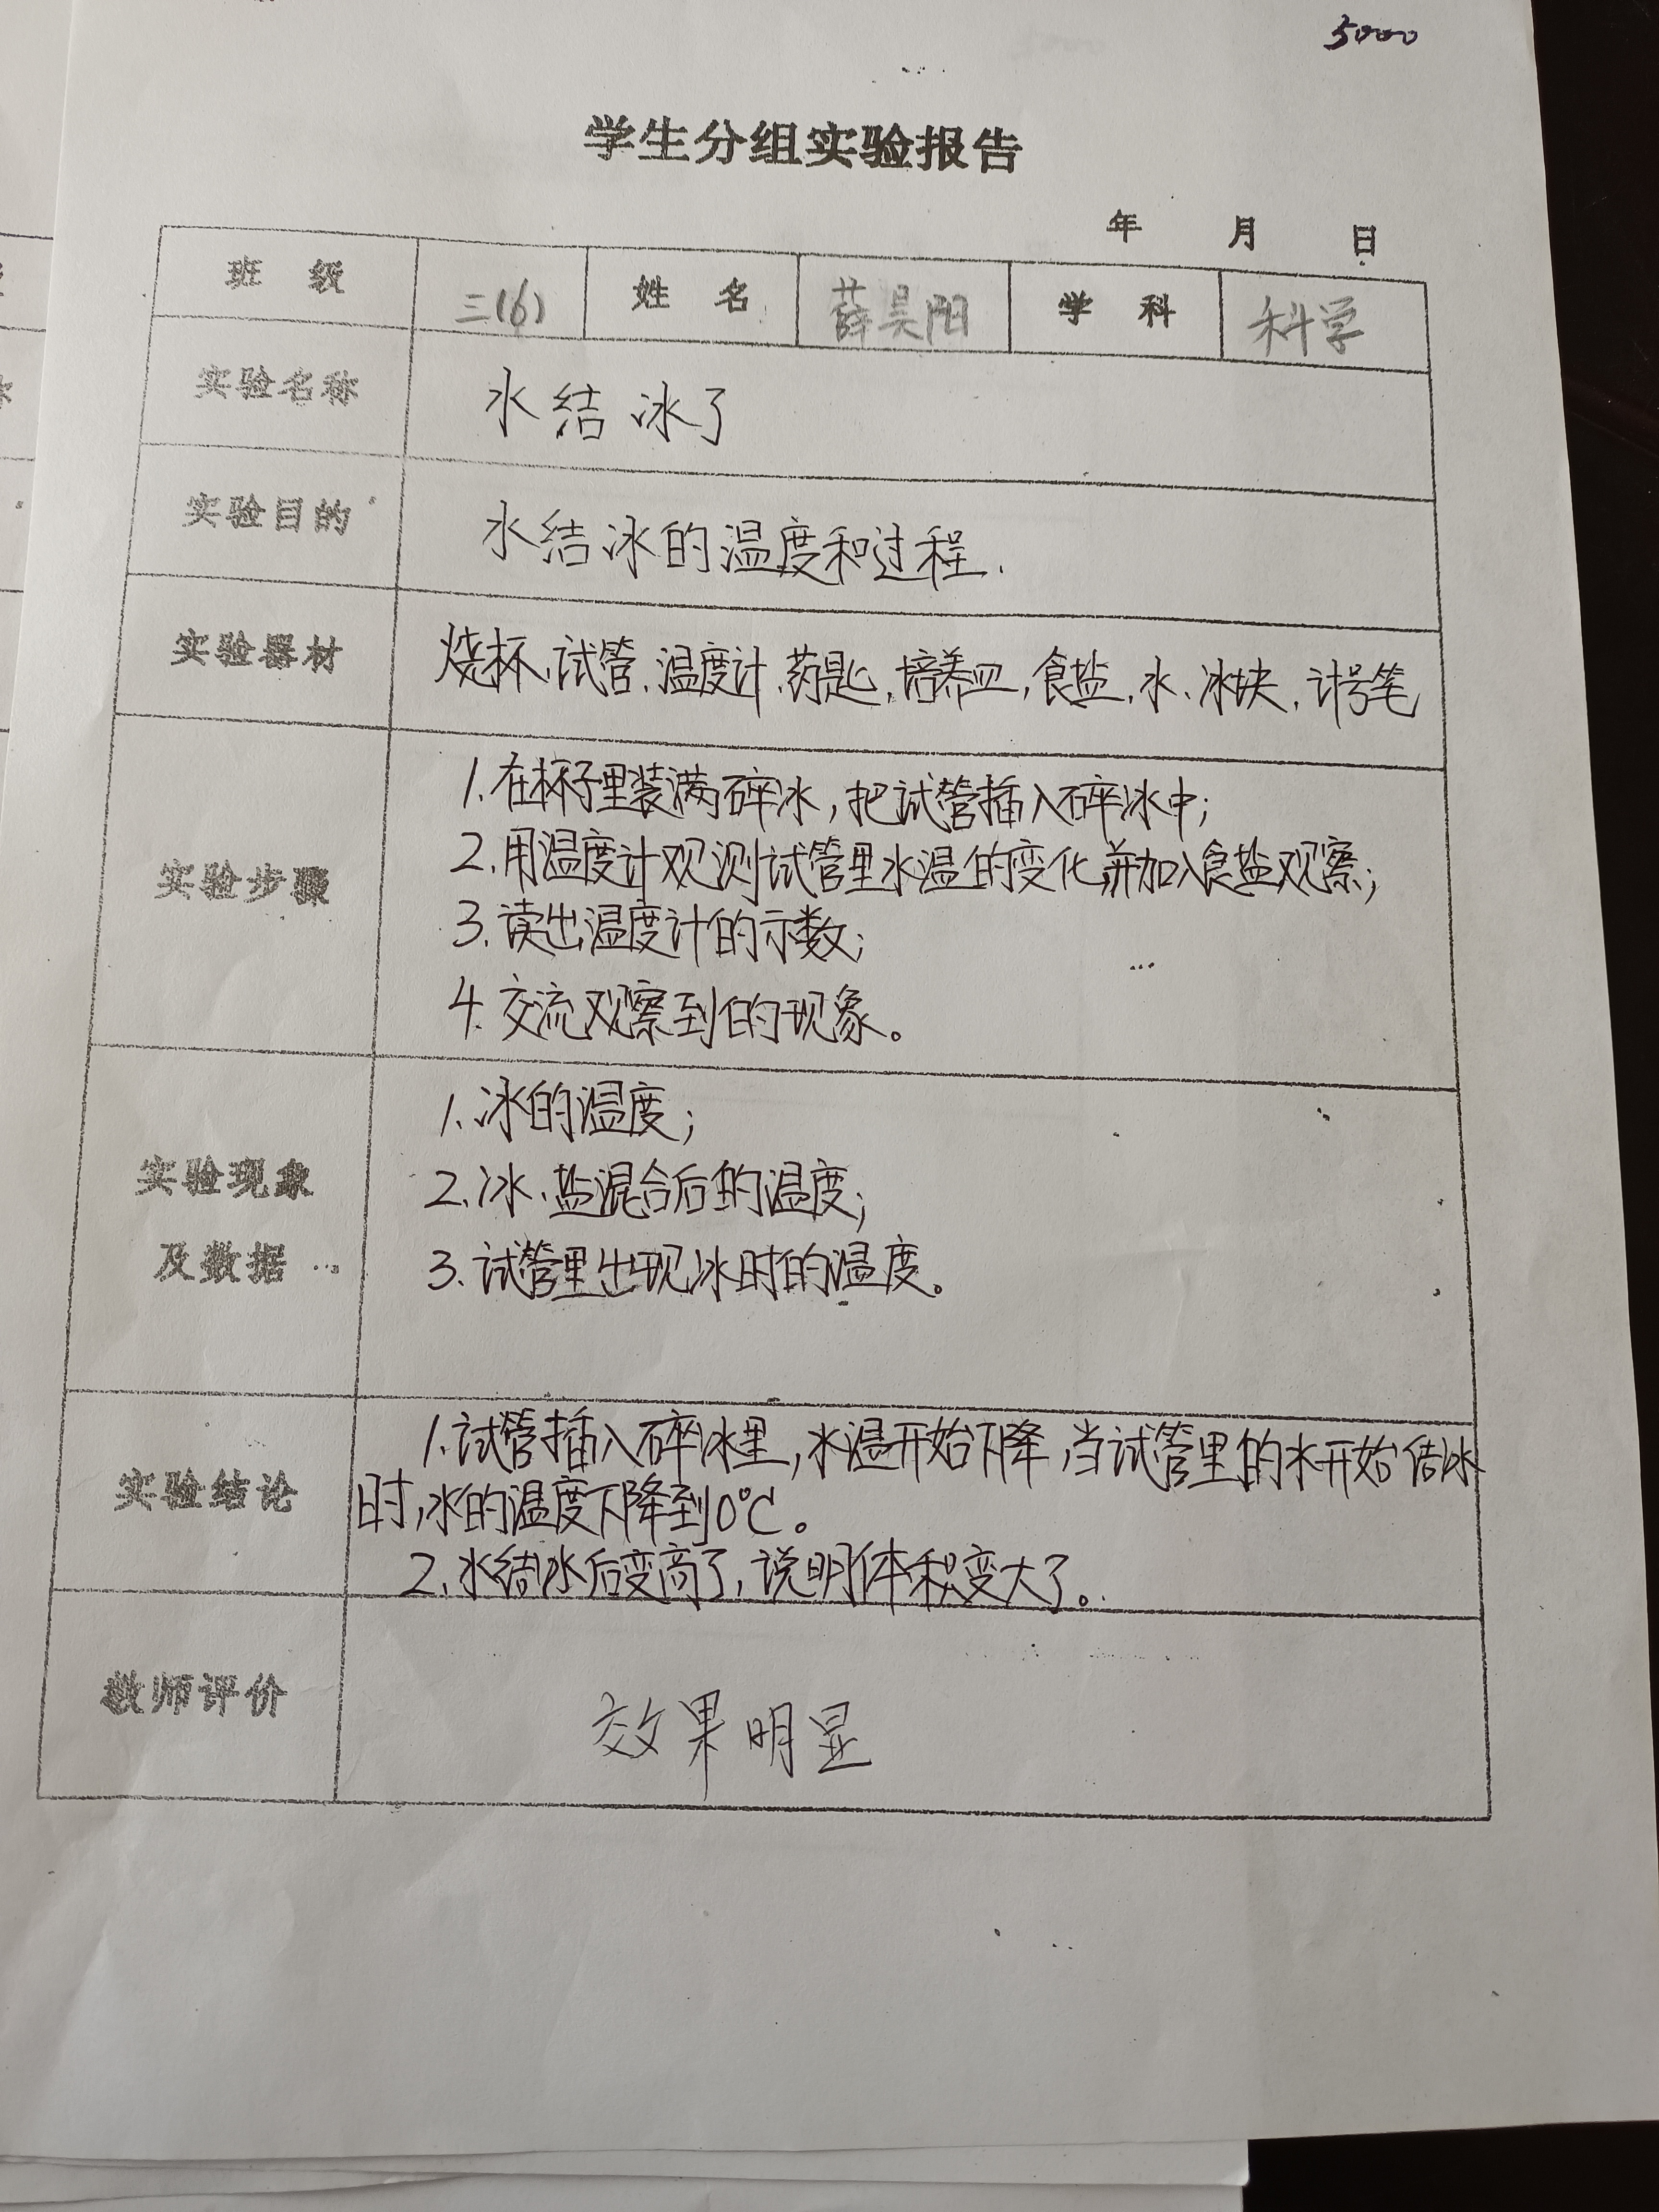 5000
学生分组实验报告
年 月 日
班 级 三(6) 姓 名 薛昊阳 学 科 科学
实验名称 水结冰了
实验目的 水结冰的温度和过程.
实验器材 烧杯、试管、温度计、药匙、培养皿,食盐、水、冰块、计号笔
实验步骤
1.在杯子里装满碎冰,把试管插入碎冰中;
2.用温度计观测试管里水温的变化,并加入食盐观察;
3.读出温度计的示数;
4.交流观察到的现象。
实验现象
及数据
1.冰的温度;
2.冰、盐混合后的温度;
3.试管里出现冰时的温度。
实验结论
1.试管插入碎冰里,水温开始下降,当试管里的水开始结冰
时,水的温度下降到0℃。
2.水结冰后变高了,说明体积变大了。
教师评价 效果明显